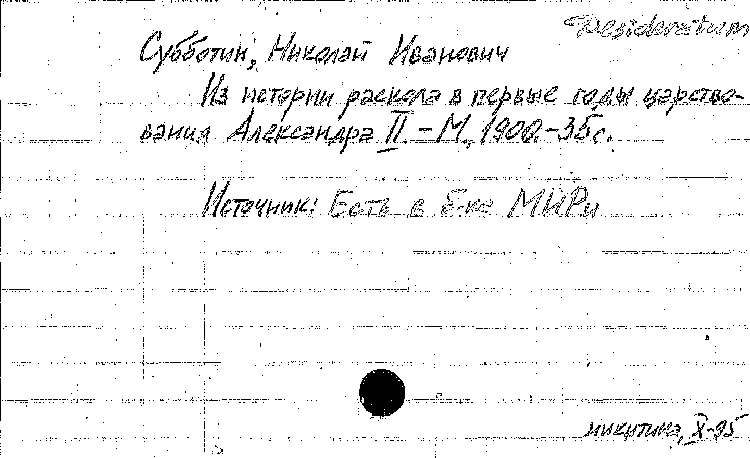 Desideratum
Субботин, Николай Иванович
Из истории раскола в первые годы царство-
вания Александра II. – М., 1900. – 35 с.
Источник: Есть в б-ке МИРи
Никитина, X-95